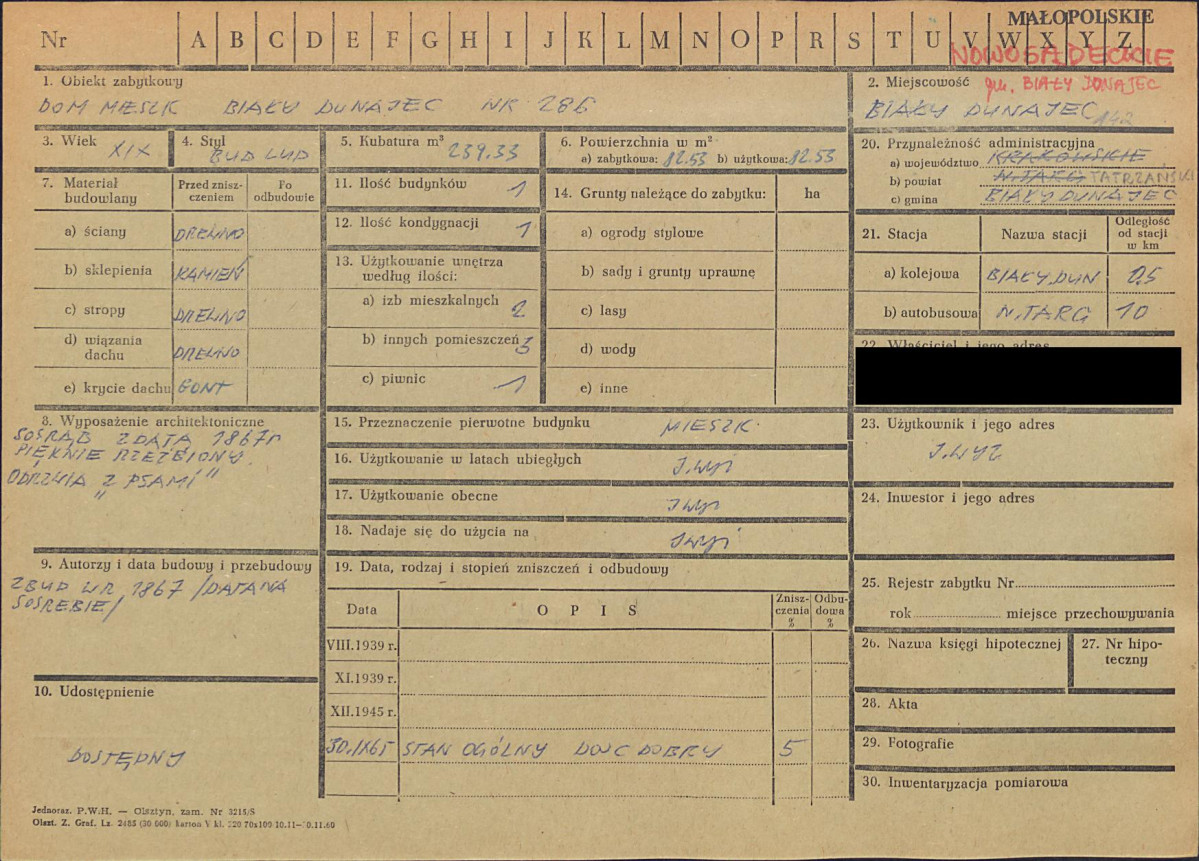 MAŁOPOLSKIE
Nr A B C D E F G H I J K L M N O P R S T U V W X Y Z
NOWOSĄDECKIE
1. Obiekt zabytkowy
DOM MIESZK BIAŁY DUNAJEC NR 286
2. Miejscowość gm. BIAŁY DUNAJEC
BIAŁY DUNAJEC 142
3. Wiek XIX
4. Styl BUD LUD
5. Kubatura m³ 239.33
6. Powierzchnia w m²
a) zabytkowa: 82.53 b) użytkowa: 82.53
20. Przynależność administracyjna
a) województwo KRAKOWSKIE
b) powiat N.TARG TATRZAŃSKI
c) gmina BIAŁY DUNAJEC
7. Materiał budowlany
Przed znisz-
czeniem
Po
odbudowie
a) ściany DREWNO
b) sklepienia KAMIEŃ
c) stropy DREWNO
d) wiązania
dachu DREWNO
e) krycie dachu GONT
11. Ilość budynków 1
12. Ilość kondygnacji 1
13. Użytkowanie wnętrza
według ilości:
a) izb mieszkalnych 2
b) innych pomieszczeń 3
c) piwnic 1
14. Grunty należące do zabytku: ha
a) ogrody stylowe
b) sady i grunty uprawnę
c) lasy
d) wody
e) inne
21. Stacja Nazwa stacji
Odległość
od stacji
w km
a) kolejowa BIAŁY DUN 0,5
b) autobusowa N.TARG 10
22. Właściciel i jego adres
8. Wyposażenie architektoniczne
SOSRĄB Z DATĄ 1867r
PIĘKNIE RZEŹBIONY
ODRZWIA "Z PSAMI"
15. Przeznaczenie pierwotne budynku MIESZK.
16. Użytkowanie w latach ubiegłych J.wyż
17. Użytkowanie obecne J.wyż
18. Nadaje się do użycia na J.wyż
23. Użytkownik i jego adres
J.WYŻ
24. Inwestor i jego adres
9. Autorzy i data budowy i przebudowy
ZBUD W R. 1867 /DATA NA
SOSREBIE/
10. Udostępnienie
DOSTĘPNY
19. Data, rodzaj i stopień zniszczeń i odbudowy
Data OPIS
Znisz-
czenia
%
Odbu-
dowa
%
VIII.1939 r.
XI.1939 r.
XII.1945 r.
30.IX65 STAN OGÓLNY DOŚĆ DOBRY 5
25. Rejestr zabytku Nr
rok miejsce przechowywania
26. Nazwa księgi hipotecznej
27. Nr hipo-
teczny
28. Akta
29. Fotografie
30. Inwentaryzacja pomiarowa
Jednoraz. P.W.H. — Olsztyn, zam. Nr 3215/S
Olszt. Z. Graf. Lz. 2485 (30 000) karton V kl. 220 70x100 10.11—10.11.60